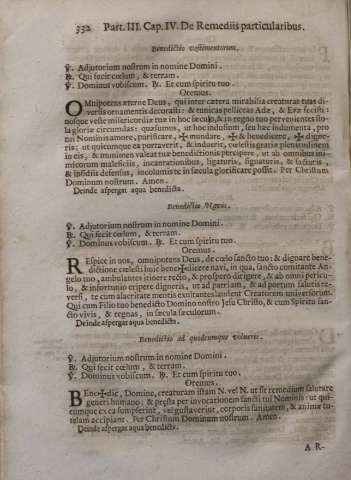 332 Part. III. Cap. IV. De Remediis particularibus.
Benedictio vestimentorum.
℣. Adjutorium nostrum in nomine Domini.
℟. Qui fecit cœlum, & terram.
℣. Dominus vobiscum. ℟. Et cum spiritu tuo.
Oremus.
OMnipotens æterne Deus, qui inter cætera mirabilia creaturas tuas di-
versis ornamentis decorasti: & tunicas pelliceas Adæ, & Evæ fecisti:
nosque veste misericordiæ tuæ in hoc sæculo, & in regno tuo pervenientes sto-
la gloriæ circumdas: quæsumus, ut hoc indumentum, seu hæc indumenta, pro
tui Nominis amore, purificare, ✠ mundare, ✠ & benedicere, ✠ digne-
ris: ut quicumque ea portaverit, & induerit, cœlestis gratiæ plenitudinem
in eis, & munimen valeat tuæ benedictionis percipere, ut ab omnibus ini-
micorum maleficiis, incantationibus, ligaturis, signaturis, & facturis,
& insidiis defensus, incolumis te in sæcula glorificare possit. Per Christum
Dominum nostrum. Amen.
Deinde aspergat aqua benedicta.
Benedictio Navis.
℣. Adjutorium nostrum in nomine Domini.
℟. Qui fecit cœlum, & terram.
℣. Dominus vobiscum. ℟. Et cum spiritu tuo.
Oremus.
REspice in nos, omnipotens Deus, de cœlo sancto tuo: & dignare bene-
dictione cœlesti huic bene✠dicere navi, in qua, sancto comitante An-
gelo tuo, ambulantes itinere recto, & prospero dirigere, & ab omni pericu-
lo, & infortunio eripere digneris, ut ad patriam, & ad portum salutis re-
versi, te cum alacritate mentis exultantes laudent Creatorem universorum.
Qui cum Filio tuo benedicto Domino nostro Jesu Christo, & cum Spiritu san-
cto vivis, & regnas, in sæcula sæculorum.
Deinde aspergat aqua benedicta.
Benedictio ad quodcumque volueris.
℣. Adjutorium nostrum in nomine Domini.
℟. Qui fecit cœlum, & terram.
℣. Dominus vobiscum. ℟. Et cum spiritu tuo.
Oremus.
BEne✠dic, Domine, creaturam istam N. vel N. ut sit remedium salutare
generi humano; & præsta per invocationem sancti tui Nominis: ut qui-
cumque ex ea sumpserint, vel gustaverint, corporis sanitatem, & animæ tu-
telam accipiant. Per Christum Dominum nostrum. Amen.
Deinde aspergat aqua benedicta.
A R-